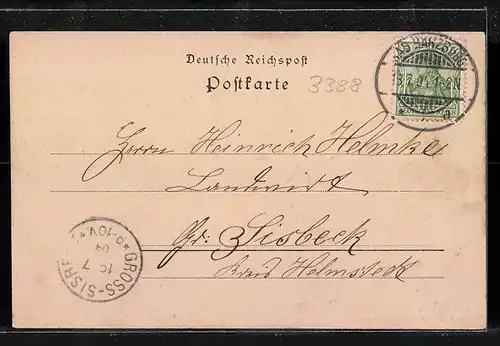 Deutsche Reichspost
Postkarte
3388
BAD HARZBURG
7.04.1-2N
a
Herrn Heinrich Helmke
Landwirt
Gr: Sisbeck
Kreis Helmstedt
GROSS-SISBE
7
04
9-10V.